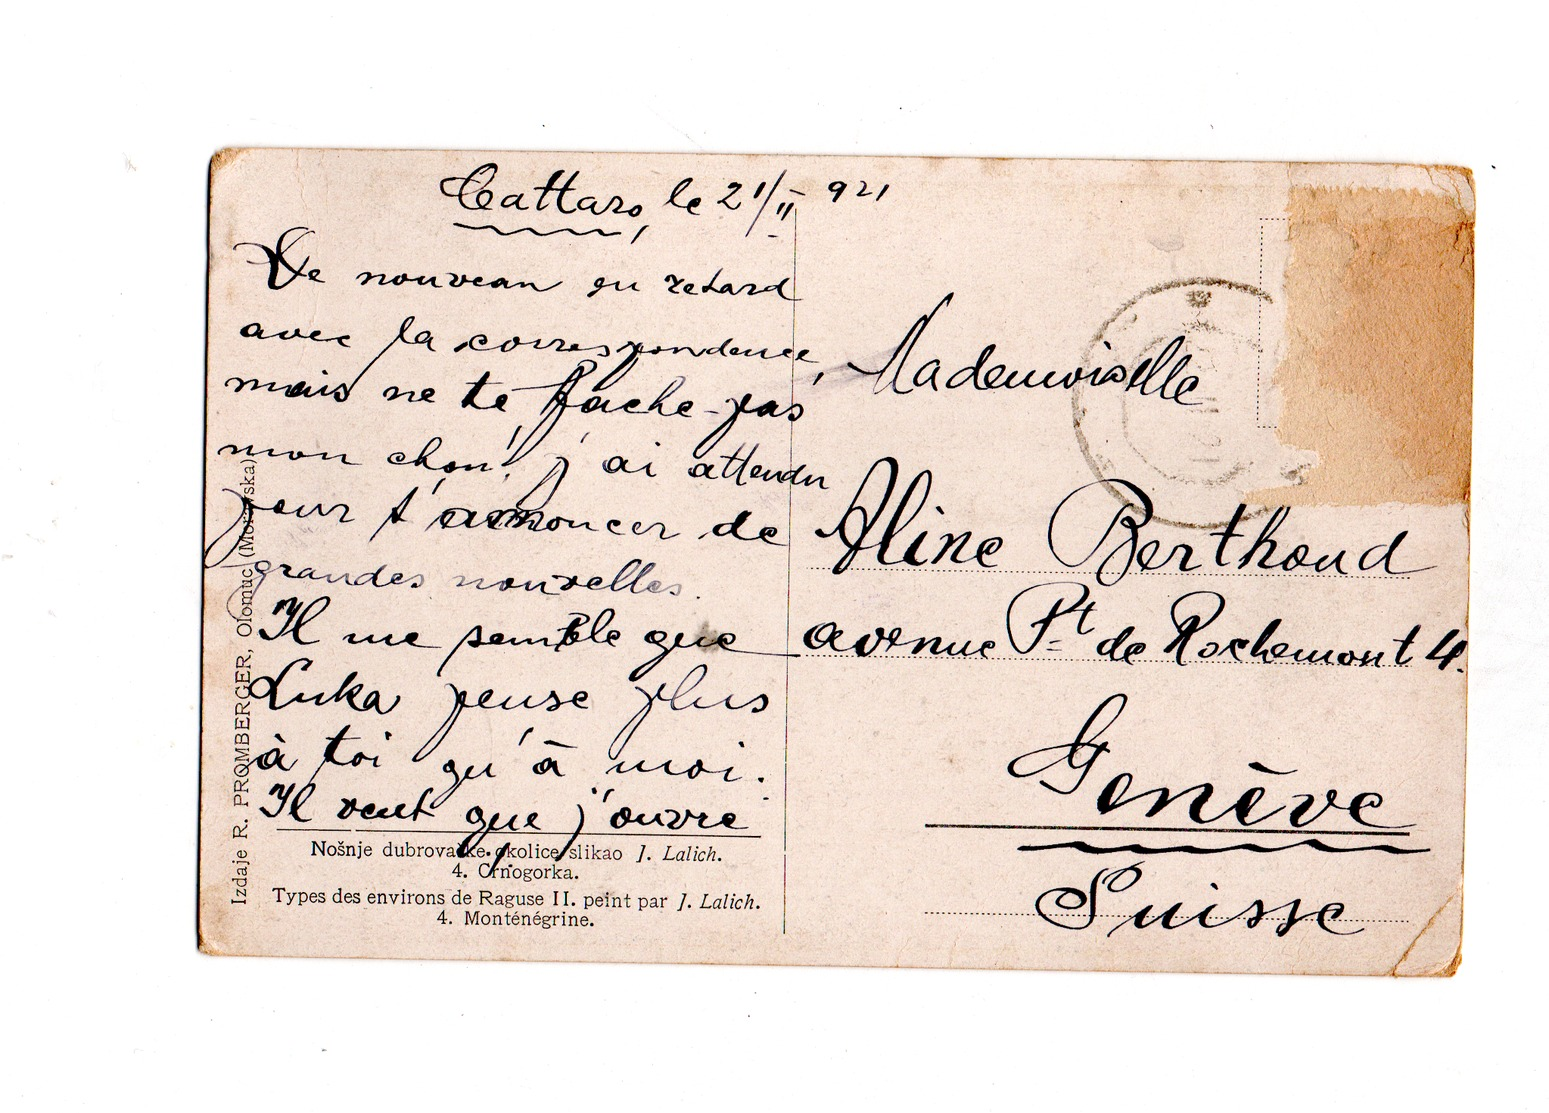 Cattaro, le 21/II 921
De nouveau en retard
avec la correspondence,
mais ne te fâche pas
mon chou! j'ai attendu
pour t'annoncer de
grandes nouvelles.
Il me semble que
Luka pense plus
à toi qu'à moi.
Il veut que j'ouvre
Nošnje dubrovačke okolice slikao J. Lalich.
4. Crnogorka.
Types des environs de Raguse II. peint par J. Lalich.
4. Monténégrine.
Izdaje R. PROMBERGER, Olomuc (Moravska)
Mademoiselle
Aline Berthoud
avenue Pt de Rochemont 4.
Genève
Suisse